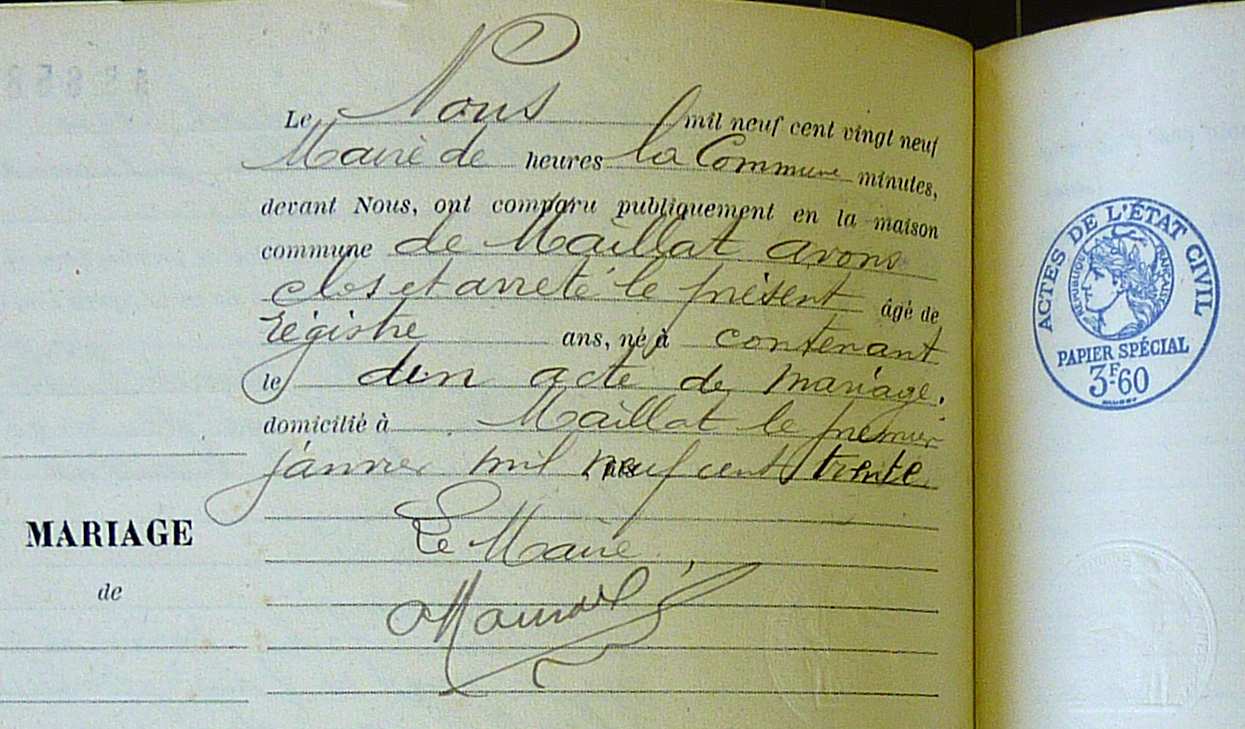 Le Nous mil neuf cent vingt neuf
Maire de heures la Commune minutes,
devant Nous, ont comparu publiquement en la maison
commune de Maillat avons
clos et arreté le présent âgé de
régistre ans, né à contenant
le dun acte de mariage.
domicilié à Maillat le premier
janvier mil neuf cent trente
MARIAGE
de
Le Maire,
ACTES DE L'ÉTAT CIVIL
RÉPUBLIQUE FRANÇAISE
PAPIER SPÉCIAL
3F.60